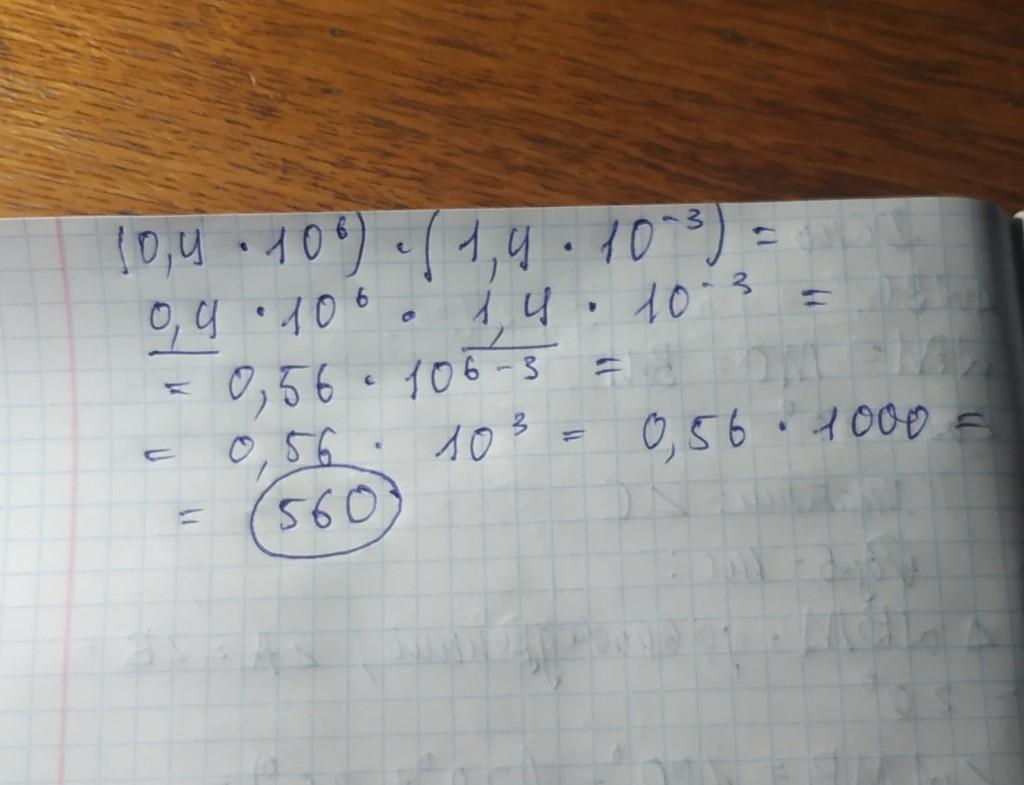 (0,4 · 10⁶) · (1,4 · 10⁻³) =
0,4 · 10⁶ · 1,4 · 10⁻³ =
= 0,56 · 10⁶⁻³ =
= 0,56 · 10³ = 0,56 · 1000 =
= 560